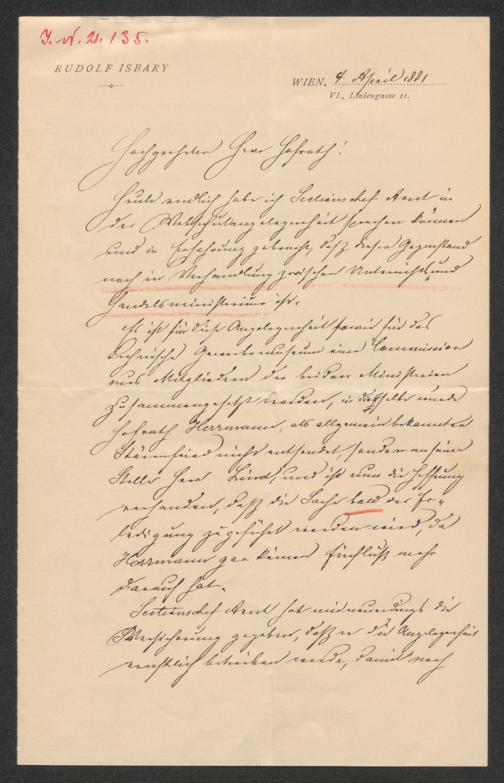 J. N. 21.135.
RUDOLF ISBARY
WIEN, 4 April 1881
VI., Liniengasse 11.
Hochgeehrter Herr Hofrath!
Heute endlich habe ich Sectionschef Arnt in
der Webschulangelegenheit sprechen können
und in Erfahrung gebracht, daß dieser Gegenstand
noch in Verhandlung zwischen Unterrichts und
Handelsministerium ist.
Es ist für diese Angelegenheit sowie für das
technische Gewerbemuseum eine Commission
aus Mitgliedern der beiden Ministerien
zusammengesetzt worden, in dieselbe wurde
Hofrath Herrmann, als allgemein bekannter
Störenfried nicht entsendet, sondern an seine
Stelle Herr Lind, und ist nun die Hoffnung
vorhanden, daß die Sache bald der Er-
ledigung zugeführt werden wird, da
Herrmann gar keinen Einfluß mehr
darauf hat.
Sectionschef Arnt hat mir neuerdings die
Versicherung gegeben, daß er die Angelegenheit
ernstlich betreiben werde, damit noch